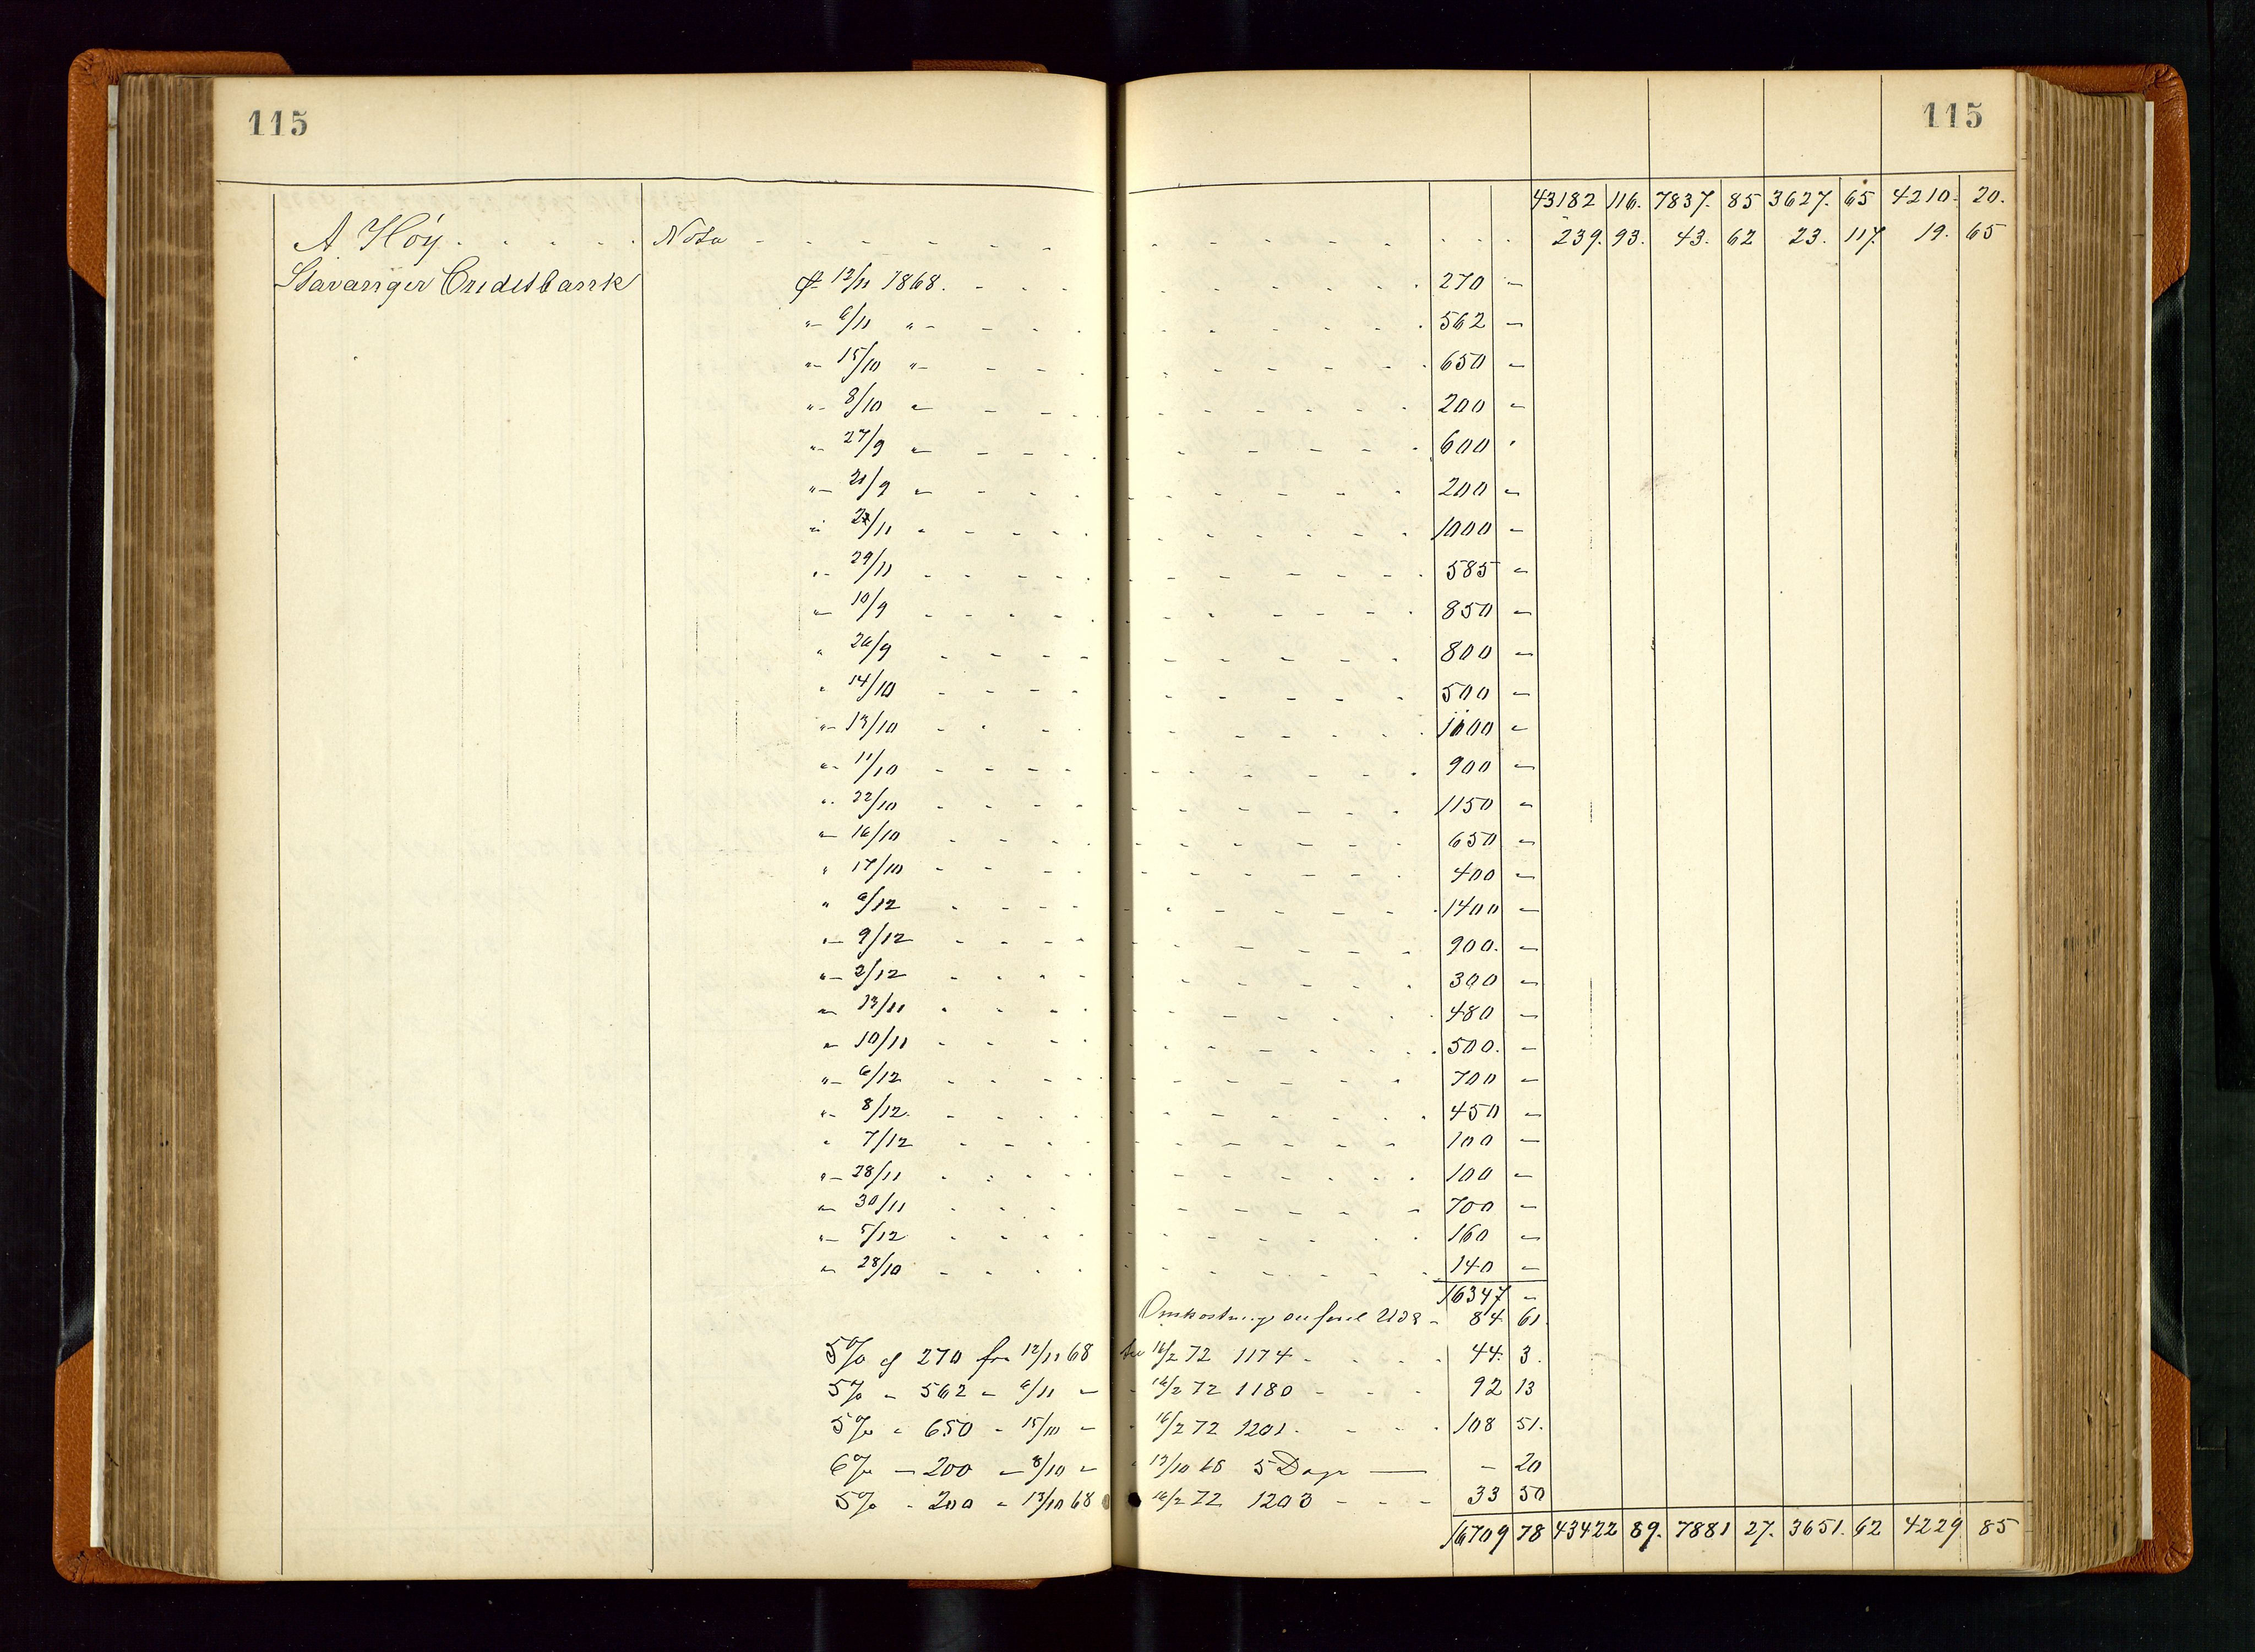 115 115
43182 116. 7837. 85 3627. 65 4210. 20.
A Höy . . . . . Nota - - - - - - - 239. 93. 43. 62 23. 117. 19. 65
Stavanger Creditbank pr 12/11 1868. - - - 270 -
"- 6/11 "- - - 562 -
"- 15/10 "- - - 650 -
"- 8/10 " - - 200 -
"- 27/9 " - - 600 -
"- 21/9 " - - 200 -
" 27/11 " - - 1000 -
"- 29/11 - - - 585 -
"- 10/9 - - - 850 -
" 26/9 - - - 800 -
" 14/10 - - - 500 -
"- 13/10 - - - 1000 -
"- 11/10 - - - 900 -
"- 22/10 - - - 1150 -
"- 16/10 - - - 650 -
" 17/10 - - - 400 -
" 6/12 - - - 1400 -
"- 9/12 - - - 900. -
"- 2/12 - - - 300 -
"- 13/11 - - - 480 -
"- 10/11 - - - 500. -
"- 6/12 - - - 700 -
"- 8/12. - - - 450 -
" 7/12 - - - 100 -
"- 28/11 - - - 100 -
"- 30/11 - - - 700 -
"- 5/12 - - - 160 -
"- 28/10 - - - 140 -
16347 -
84 61.
5% af 270 fra 12/11 68 til 16/2 72 1174 - - - 44. 3.
5% - 562 - 6/11 - - 16/2 72 1180 - - - 92 13
5% - 650 - 15/10 - - 16/2 72 1201. - - - 108 51.
6% - 200 - 8/10 - - 13/10 68 5 Dage - - 20
5% - 200 - 13/10 68 16/2 72 1203 - - - 33 50
16709 78 43422 89. 7881 27. 3651. 62 4229 85